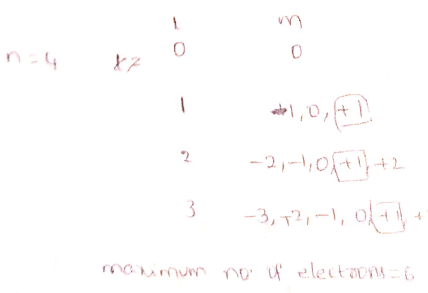 l m
n=4 0 0
1 -1, 0, +1
2 -2, -1, 0, +1, +2
3 -3, -2, -1, 0, +1, +
maximum no of electrons = 6